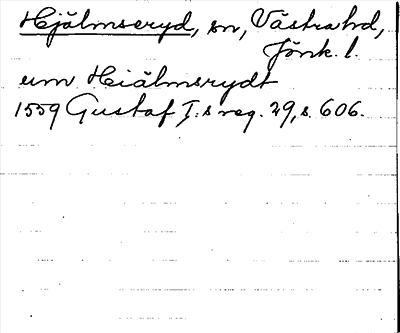 Hjälmseryd, sn, Västra hd,
Jönk. l.
um Hiälmsrydt
1559 Gustaf I:s reg. 29, s. 606.